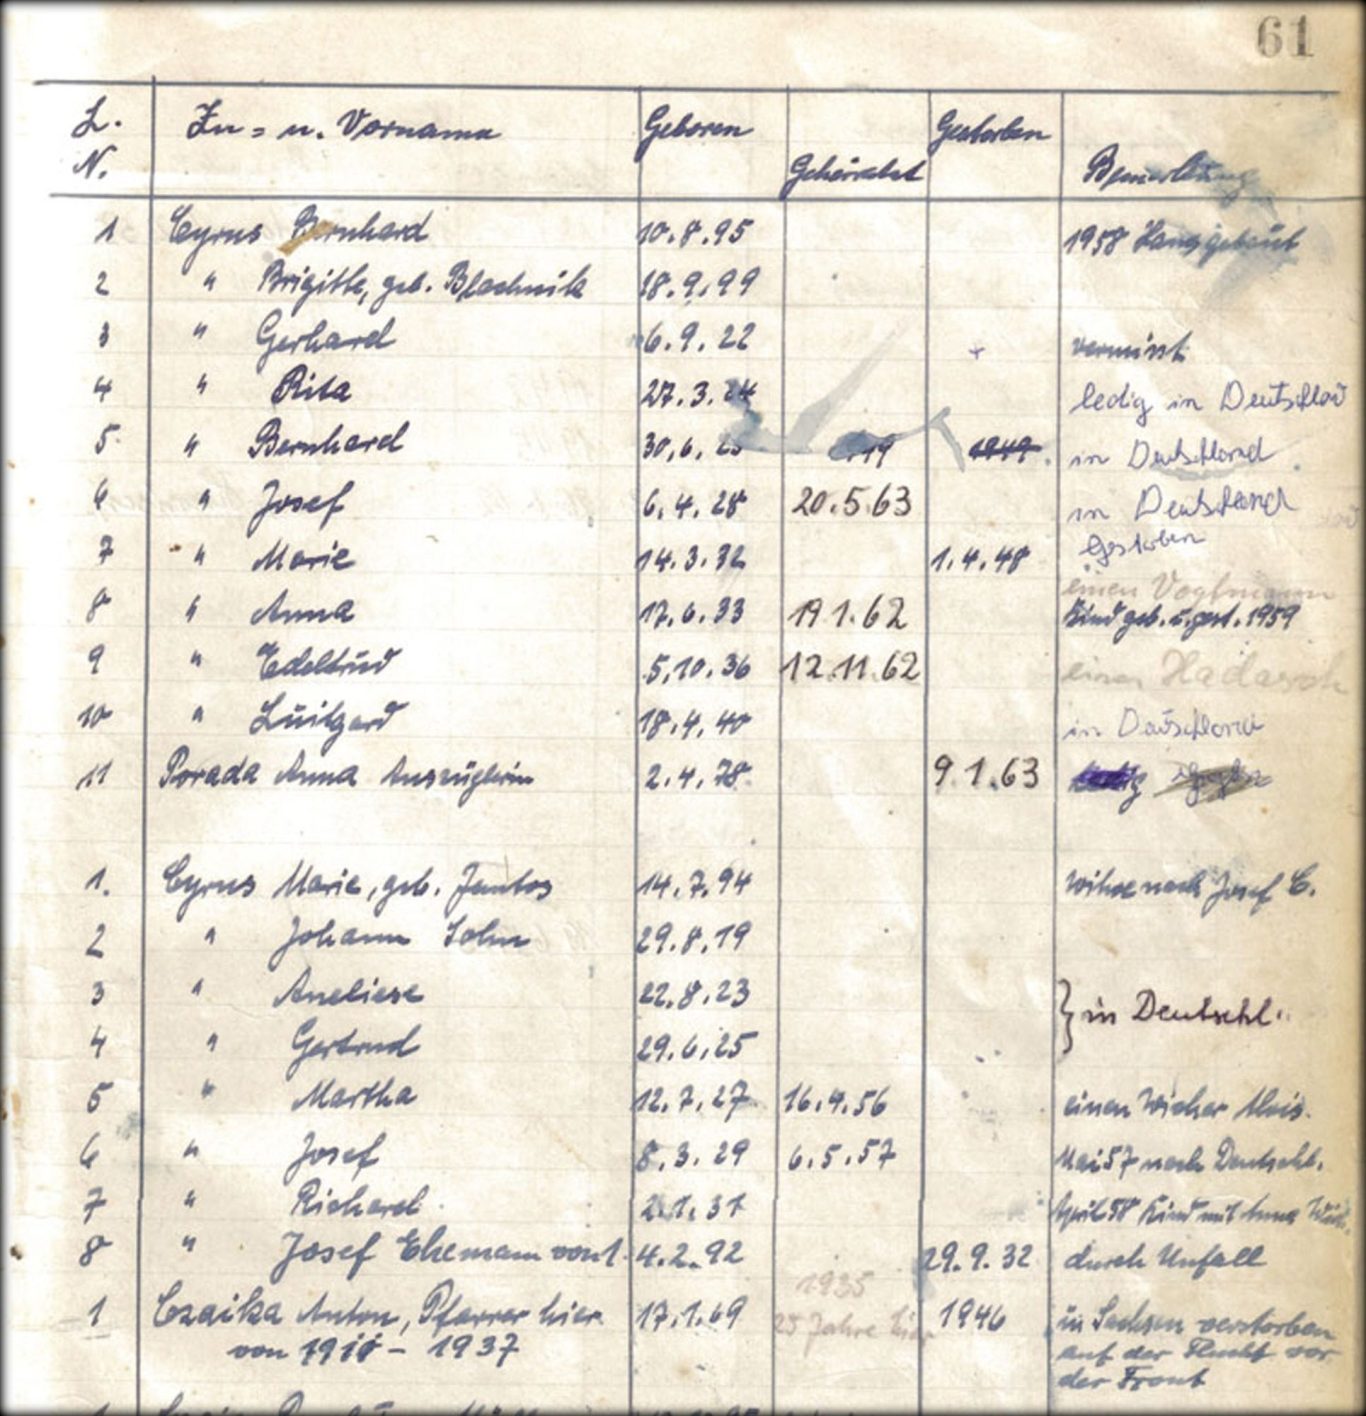 61
L. N. Zu= u. Vorname Geboren Geheiratet Gestorben Bemerkung
1 Cyrus Bernhard 10.8.95 1958 Haus gebaut
2 " Brigitte, geb. Blachnik 18.9.99
3 " Gerhard 6.9.22 + vermisst
4 " Rita 27.3.24 ledig in Deutschland
5. " Bernhard 30,6,25 1949. in Deutschland
6 " Josef 6.4.28 20.5.63 in Deutschland
7 " Marie 14.3.32 1.4.48 Gestorben
einen Voglmann
8 " Anna 17.6.33 19.1.62 Kind geb. u. gest. 1959
9 " Edeltrud 5,10.36 12.11.62 einen Hadasch
10 " Luitgard 18.4.40 in Deutschland
11 Porada Anna Auszüglerin 2.4.78. 9.1.63
1. Cyrus Marie, geb. Jantos 14.7.94 Witwe nach Josef C.
2 " Johann Sohn 29.8.19
3 " Aneliese 22.8.23
} in Deutschl.
4 " Gertrud 29.6.25
5 " Martha 12.7.27 16.4.56 einen Wicher Alois.
6 " Josef 8.3.29 6.5.57 Mai 57 nach Deutschl.
7 " Richard 2.1.31 April 58 Kind mit Anna
8 " Josef Ehemann von 1. 4.2.92 29.9.32 durch Unfall
1935
1 Czaika Anton, Pfarrer hier 17.1.69 25 Jahre hier 1946 in Sachsen verstorben
von 1910 - 1937 auf der Flucht vor
der Front